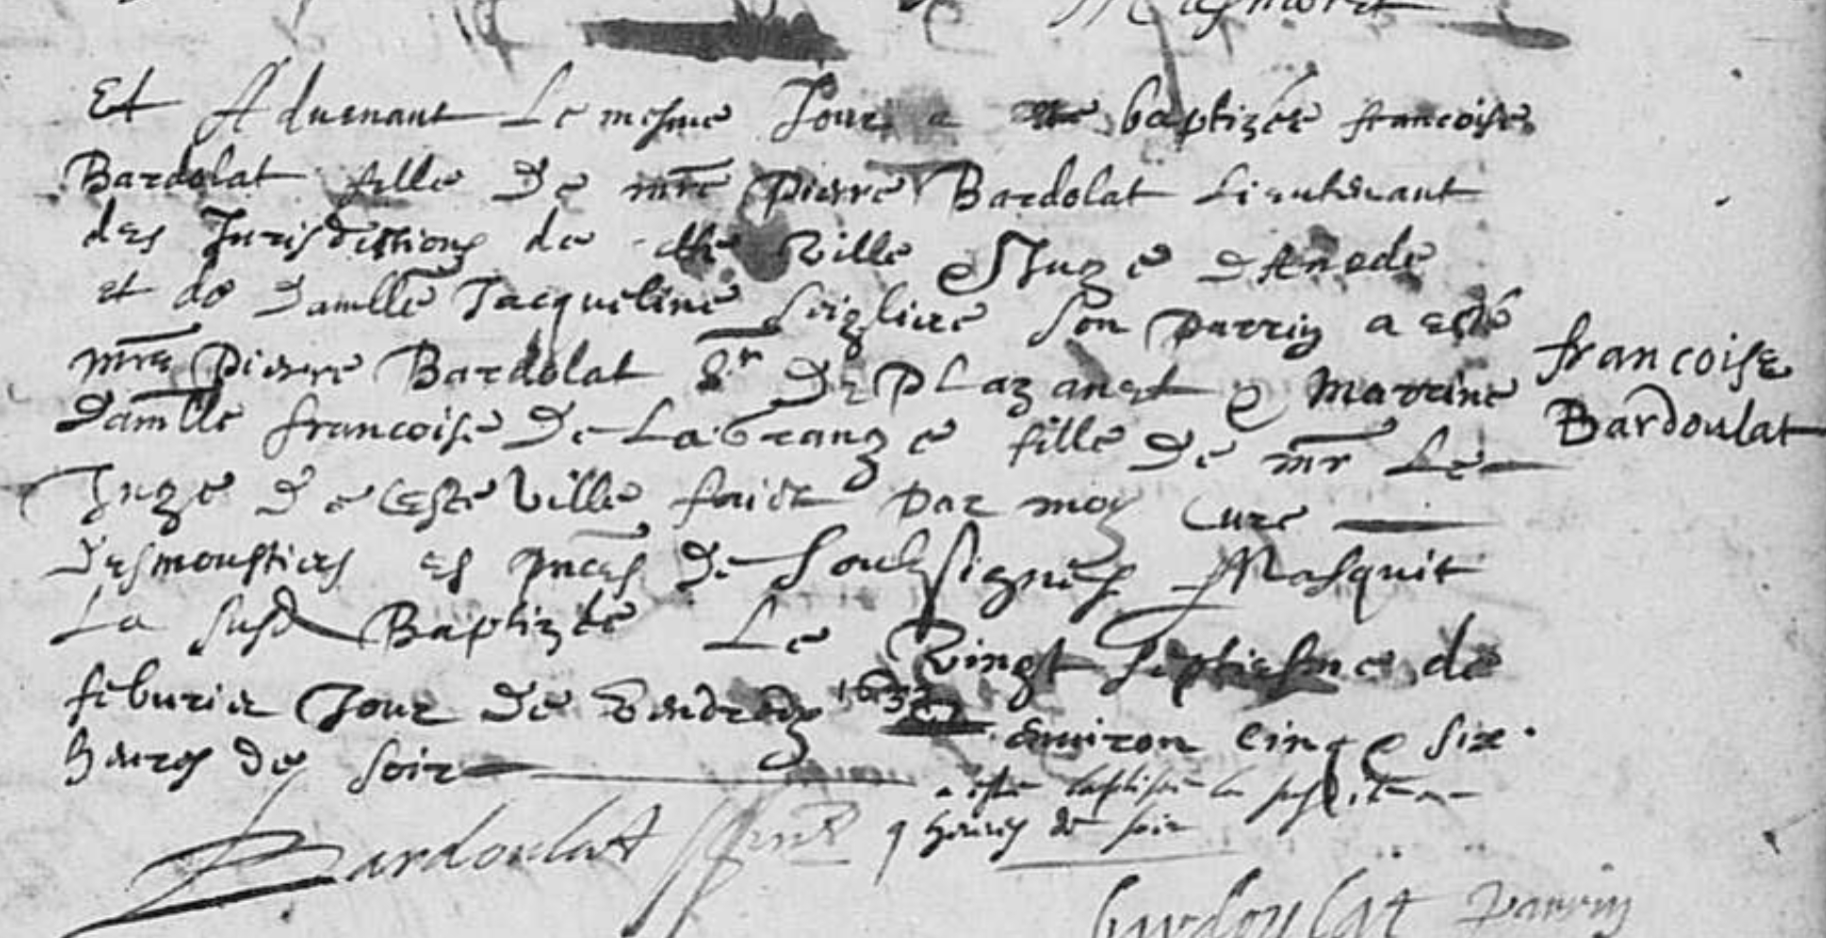 Et Aduenant Le mesme Jour a este baptizée francoise
Bardolat fille De mre Pierre Bardolat Lieutenant
des Jurisdictions de ville & Juge
et de damlle Jacqueline seigliere son parrin a esté
mre Pierre Bardolat Sr De Plazanet & marrine
Damlle francoise De La Grange fille De mr Le
Juge De Ceste Ville faict par moy Curé
Desmoustiers es pnces De soubsignes Nasquit
La susd Baptizée Le Vingt septiesme de
feburier Jour De Vendredy environ cinq & six
heures de soir
francoise
Bardoulat
a esté baptisée la
heures de soir
Bardoulat
bardoulat parrin